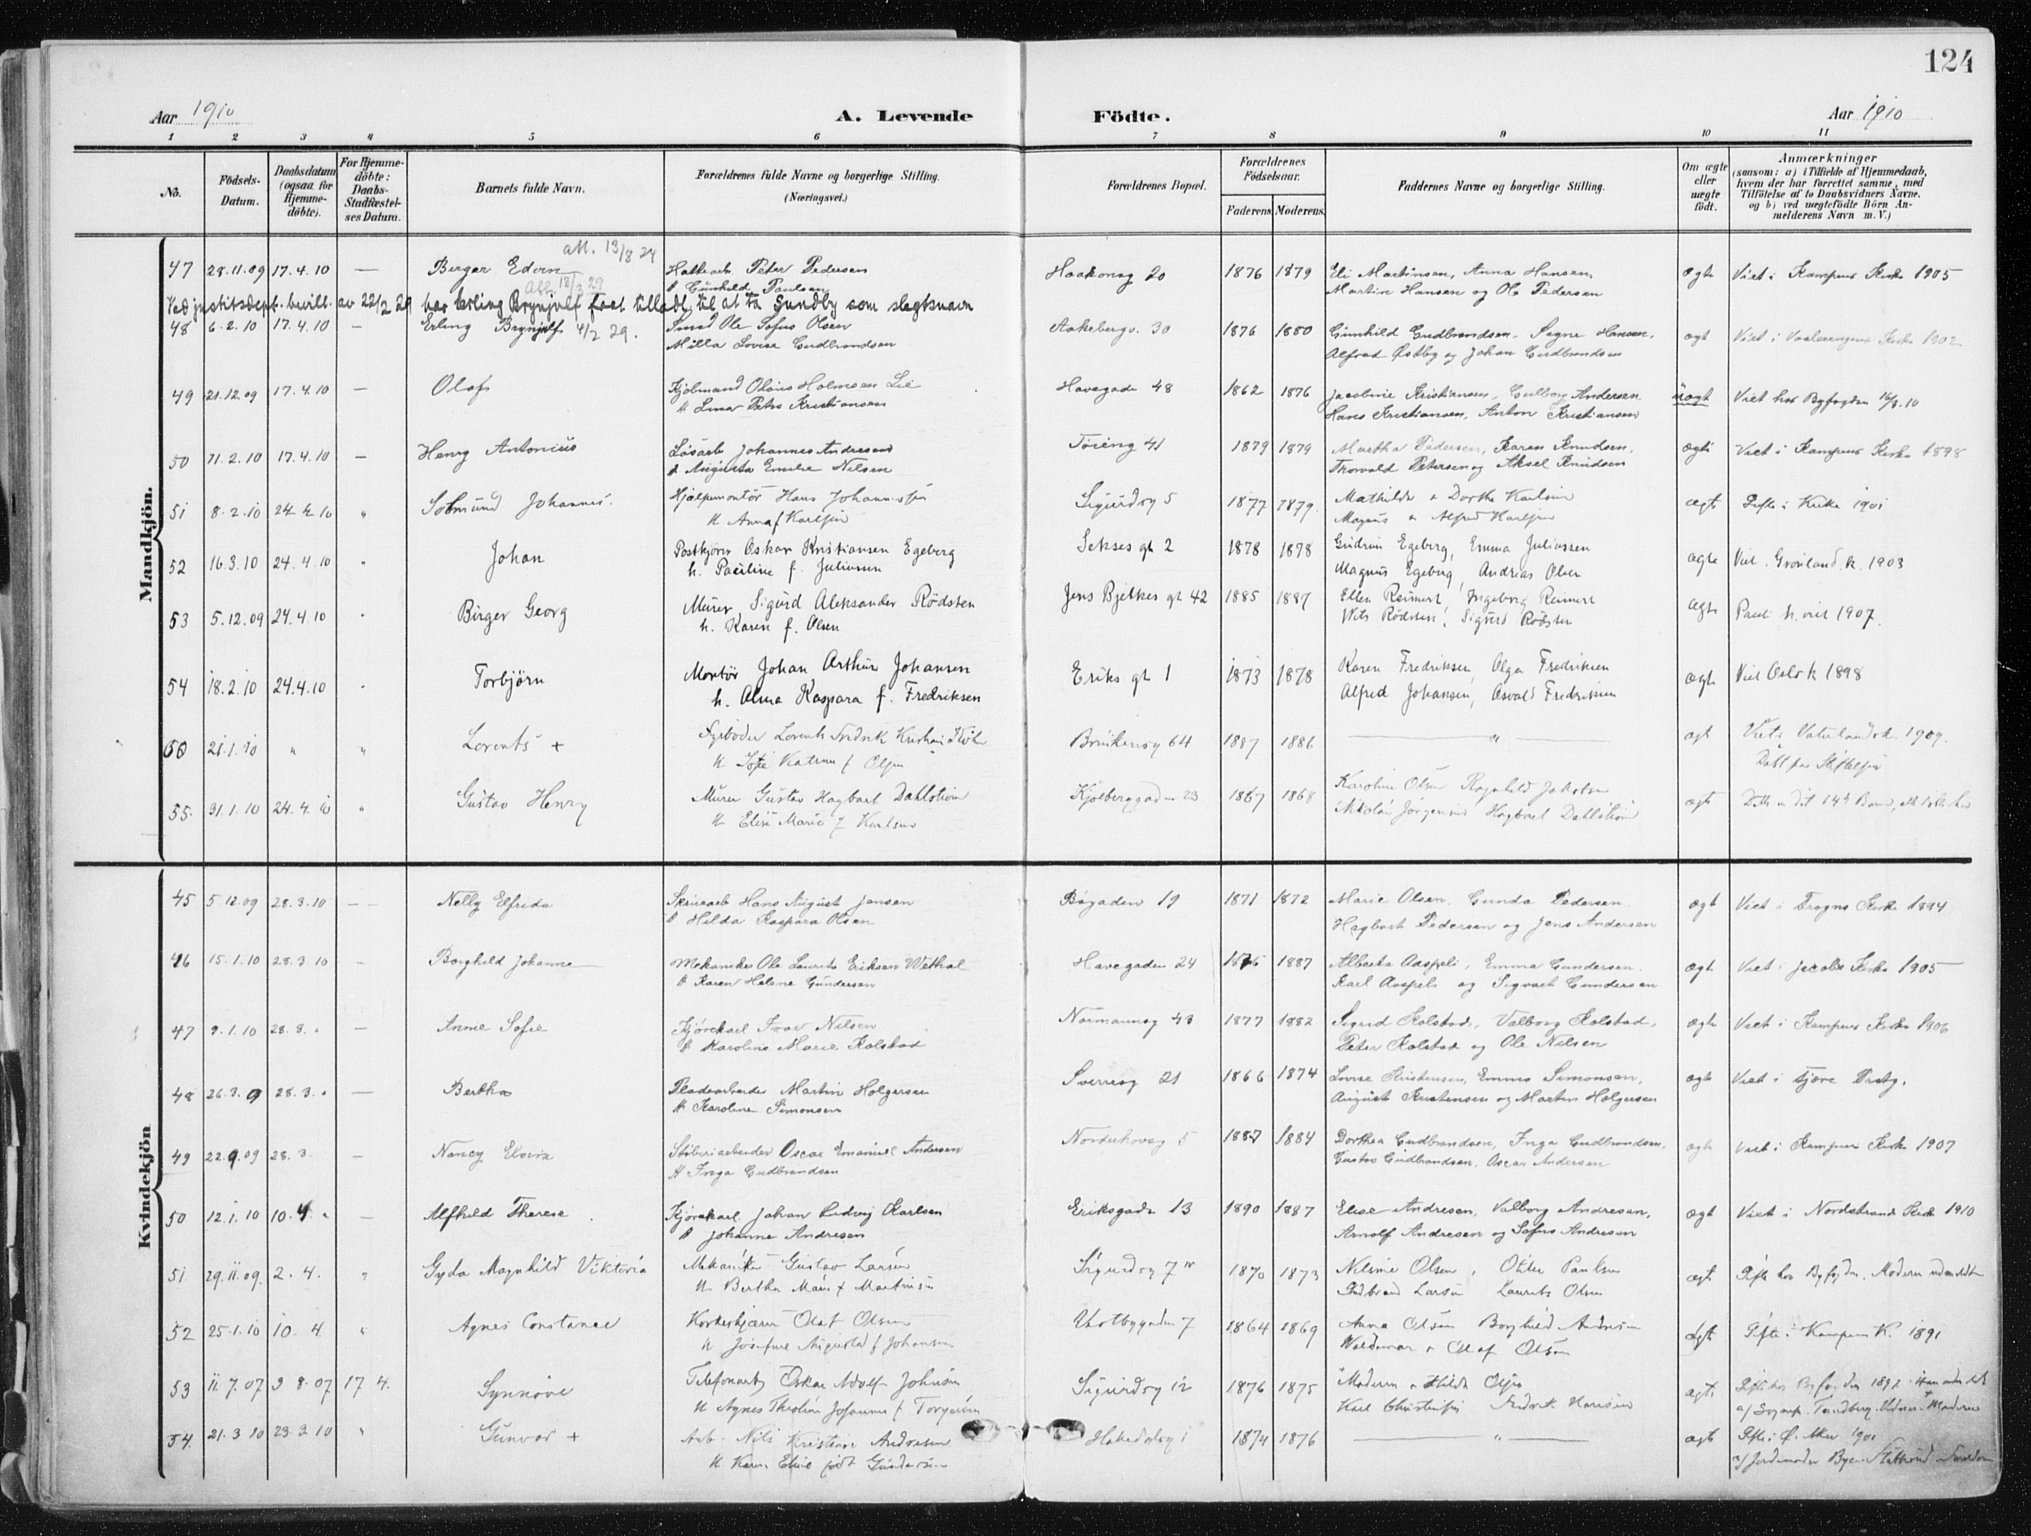 124
Aar 1910
A. Levende
Födte.
Aar 1910
1 2 3 4 5 6 7 8 9 10 11
Nö.
Födsels-Datum.
Daabsdatum (ogsaa for Hjemme-döbte).
For Hjemme-döbte: Daabs-Stadfæstel-ses Datum.
Barnets fulde Navn.
Forældrenes fulde Navne og borgerlige Stilling. (Næringsvei.)
Forældrenes Bopæl.
Forældrenes Födselsaar.
Faderens. Moderens.
Faddernes Navne og borgerlige Stilling.
Om ægte eller uægte födt.
Anmærkninger
(saasom: a) i Tilfælde af Hjemmedaab, hvem der har forrettet samme, med Tilföielse af to Daabsvidners Navne. og b) ved uægtefödte Börn An-melderens Navn m. V.)
Mandkjön.
att. 13/8 24
47 28.11.09 17.4.10 — Birger Edvin Peter Pedersen Haakonsg 20 1876 1879 Eli Martinsen, Anna Hansen, ægte Viet i Kampens Kirke 1905
Gunhild Paulsen Martin Hansen og Ole Pedersen
Ved justitsdept. bevill. av 22/2 29 har Erling Brynjulf faat tilladl. til at ta Sundby som slegtsnavn
48 6.2.10 17.4.10 — Erling Brynjulf 4/2 29. Smed Ole Sofus Olsen Aakebergv. 30 1876 1880 Gunhild Gudbrandsen, Signe Hansen, ægt Viet i Vaalerengens Kirke 1902
Milla Lovise Gudbrandsen Alfred Østby og Johan Gudbrandsen
49 21.12.09 17.4.10 — Olaf Kjöbmand Olaus Holmsen Lie Havegade 48 1862 1876 Jacobine Kristiansen, Gulborg Andersen uægt Viet hos Byfogden 16/3.10
Petra Kristiansen Hans Kristiansen, Anton Kristiansen
50 11.2.10 17.4.10 — Henry Antonius Løsarb Johannes Andresen Töieng 41 1879 1879 Martha Pedersen, Karen Knudsen, ægte Viet i Kampens Kirke 1898
Augusta Emilie Nilsen Thorvald Petersen og Aksel Knudsen
51 8.2.10 24.4.10 " Johannes. Hjælpemontör Hans Johannessen Sigurdsg 5 1877 1879. Mathilde & Dorthe Karlsen ægte Gifte i Kirke 1901
Magnus & Alfred Karlsen
52 16.3.10 24.4.10 " Johan Postkjörer Oskar Kristiansen Egeberg Sekses gt 2 1878 1878 Gudrun Egeberg, Emma Juliussen ægte Viet. Grönland k. 1903
h. Pauline f. Juliussen Magnus Egeberg, Andreas Olsen
53 5.12.09 24.4.10 " Birger Georg Murer Sigurd Aleksander Rödsten Jens Bjelkes gt 42 1885 1887 Ellen Reinert, Ingeborg Reinert ægte Pauli k. viet 1907.
h. Karen f. Olsen Nils Rödsten, Sigurd Rödsten
54 18.2.10 24.4.10 " Torbjörn Montör Johan Arthur Johansen Eriks gt 1 1873 1878 Karen Fredriksen, Olga Fredriksen ægte Viet Oslo k 1898
h. Alma Kaspara f. Fredriksen Alfred Johansen, Osvald Fredriksen
21.1.10 " " Lorents + 64 1887 1886 — " — ægt Viet i Vaterlands k. 1909.
55. 31.1.10 24.4.10 " Gustav Henry Murer Gustav Hagbart Dahlström Kjölberggaden 23 1867 1868 Karoline Olsen Ragnhild Jakobsen ægt
Elise Marie f Karlsen Nikolai Jörgensen Hagbart Dahlström
Kvindekjön
45 5.12.09 28.3.10 — Nelly Elfrida Skruearb Hans August Jansen Bögaden 19 1871 1872 Marie Olsen, Gunda Pedersen. ægt Viet i Trogns Kirke 1894
Hilda Kaspara Olsen Hagbart Pedersen og Jens Andersen
46 15.1.10 28.3.10 — Borghild Johanne Mekaniker Ole Laurits Eriksen Wethal Havegaden 24 1887 Alberta Aaspeli, Emma Gundersen. ægt Viet i Jacobs Kirke 1905
Karen Helene Gundersen Karl Aaspeli og Sigvart Gundersen
47 9.1.10 28.3. " — Anne Sofie Kjörekarl Ivar Nilsen Normannsg 43 1877 1882 Sigrid Kolstad, Valborg Kolstad, ægte Viet i Kampens Kirke 1906
Karoline Marie Kolstad Peter Kolstad og Ole Nilsen
48 26.3.9 28.3. " — Bertha Pladearbeider Martin Holgersen Sverresg 21 1866 1874 Lovise Kristensen, Emma Simonsen, ægt
Karoline Simonsen August Kristensen og Martin Holgersen
49 22.9.09 28.3. — Nancy Elvira Støberiarbeider Oscar Emanuel Andersen Nordahovsg 5 1887 1884 Dorthea Gudbrandsen, Inga Gudbrandsen. ægte Viet i Kampens Kirke 1907
Inga Gudbrandsen Gustav Gudbrandsen, Oscar Andersen
50 12.1.10 10.4. " — Alfhild Therese Kjörekarl Johan Ludvig Karlsen Eriksgade 13 1890 1887 Elise Andresen, Valborg Andresen, ægt Viet i Nordstrands Kirke 1910
Johanne Andresen Arnolf Andresen og Sofus Andresen
51. 29.11.09. 2.4. " Gyda Magnhild Viktoria Mekaniker Gustav Larsen Sigurdsg 7 1870 1873 Nilsine Olsen, Paulsen ægt Gifte hos Byfogden. Moderen udmeldt
Bertha Marie f Martinsen Gudbrand Larsen Laurits Olsen
52 25.1.10 10.4. " Agnes Constance Olaf Olsen 7 1864 1869 Anna Olsen Borghild Andersen ægt Gifte i Kampens K. 1891
Josefine Augusta f Johansen Waldemar & Olaf Olsen
53 11.7.07 9 8.07 17 4. Synnöve Telefonarb Oskar Adolf Johnsen Sigurdsg 12 1876 1875 Moderen & Hilda Olsen ægte
Karl Christensen Fredrik Hansen
54. 21.3.10 23.3.10 " Gunvor + Arb. Nils Kristian Andresen 1874 1876 — " — ægt Gifte i Ø. Aker 1901
Karen Elise født Gundersen